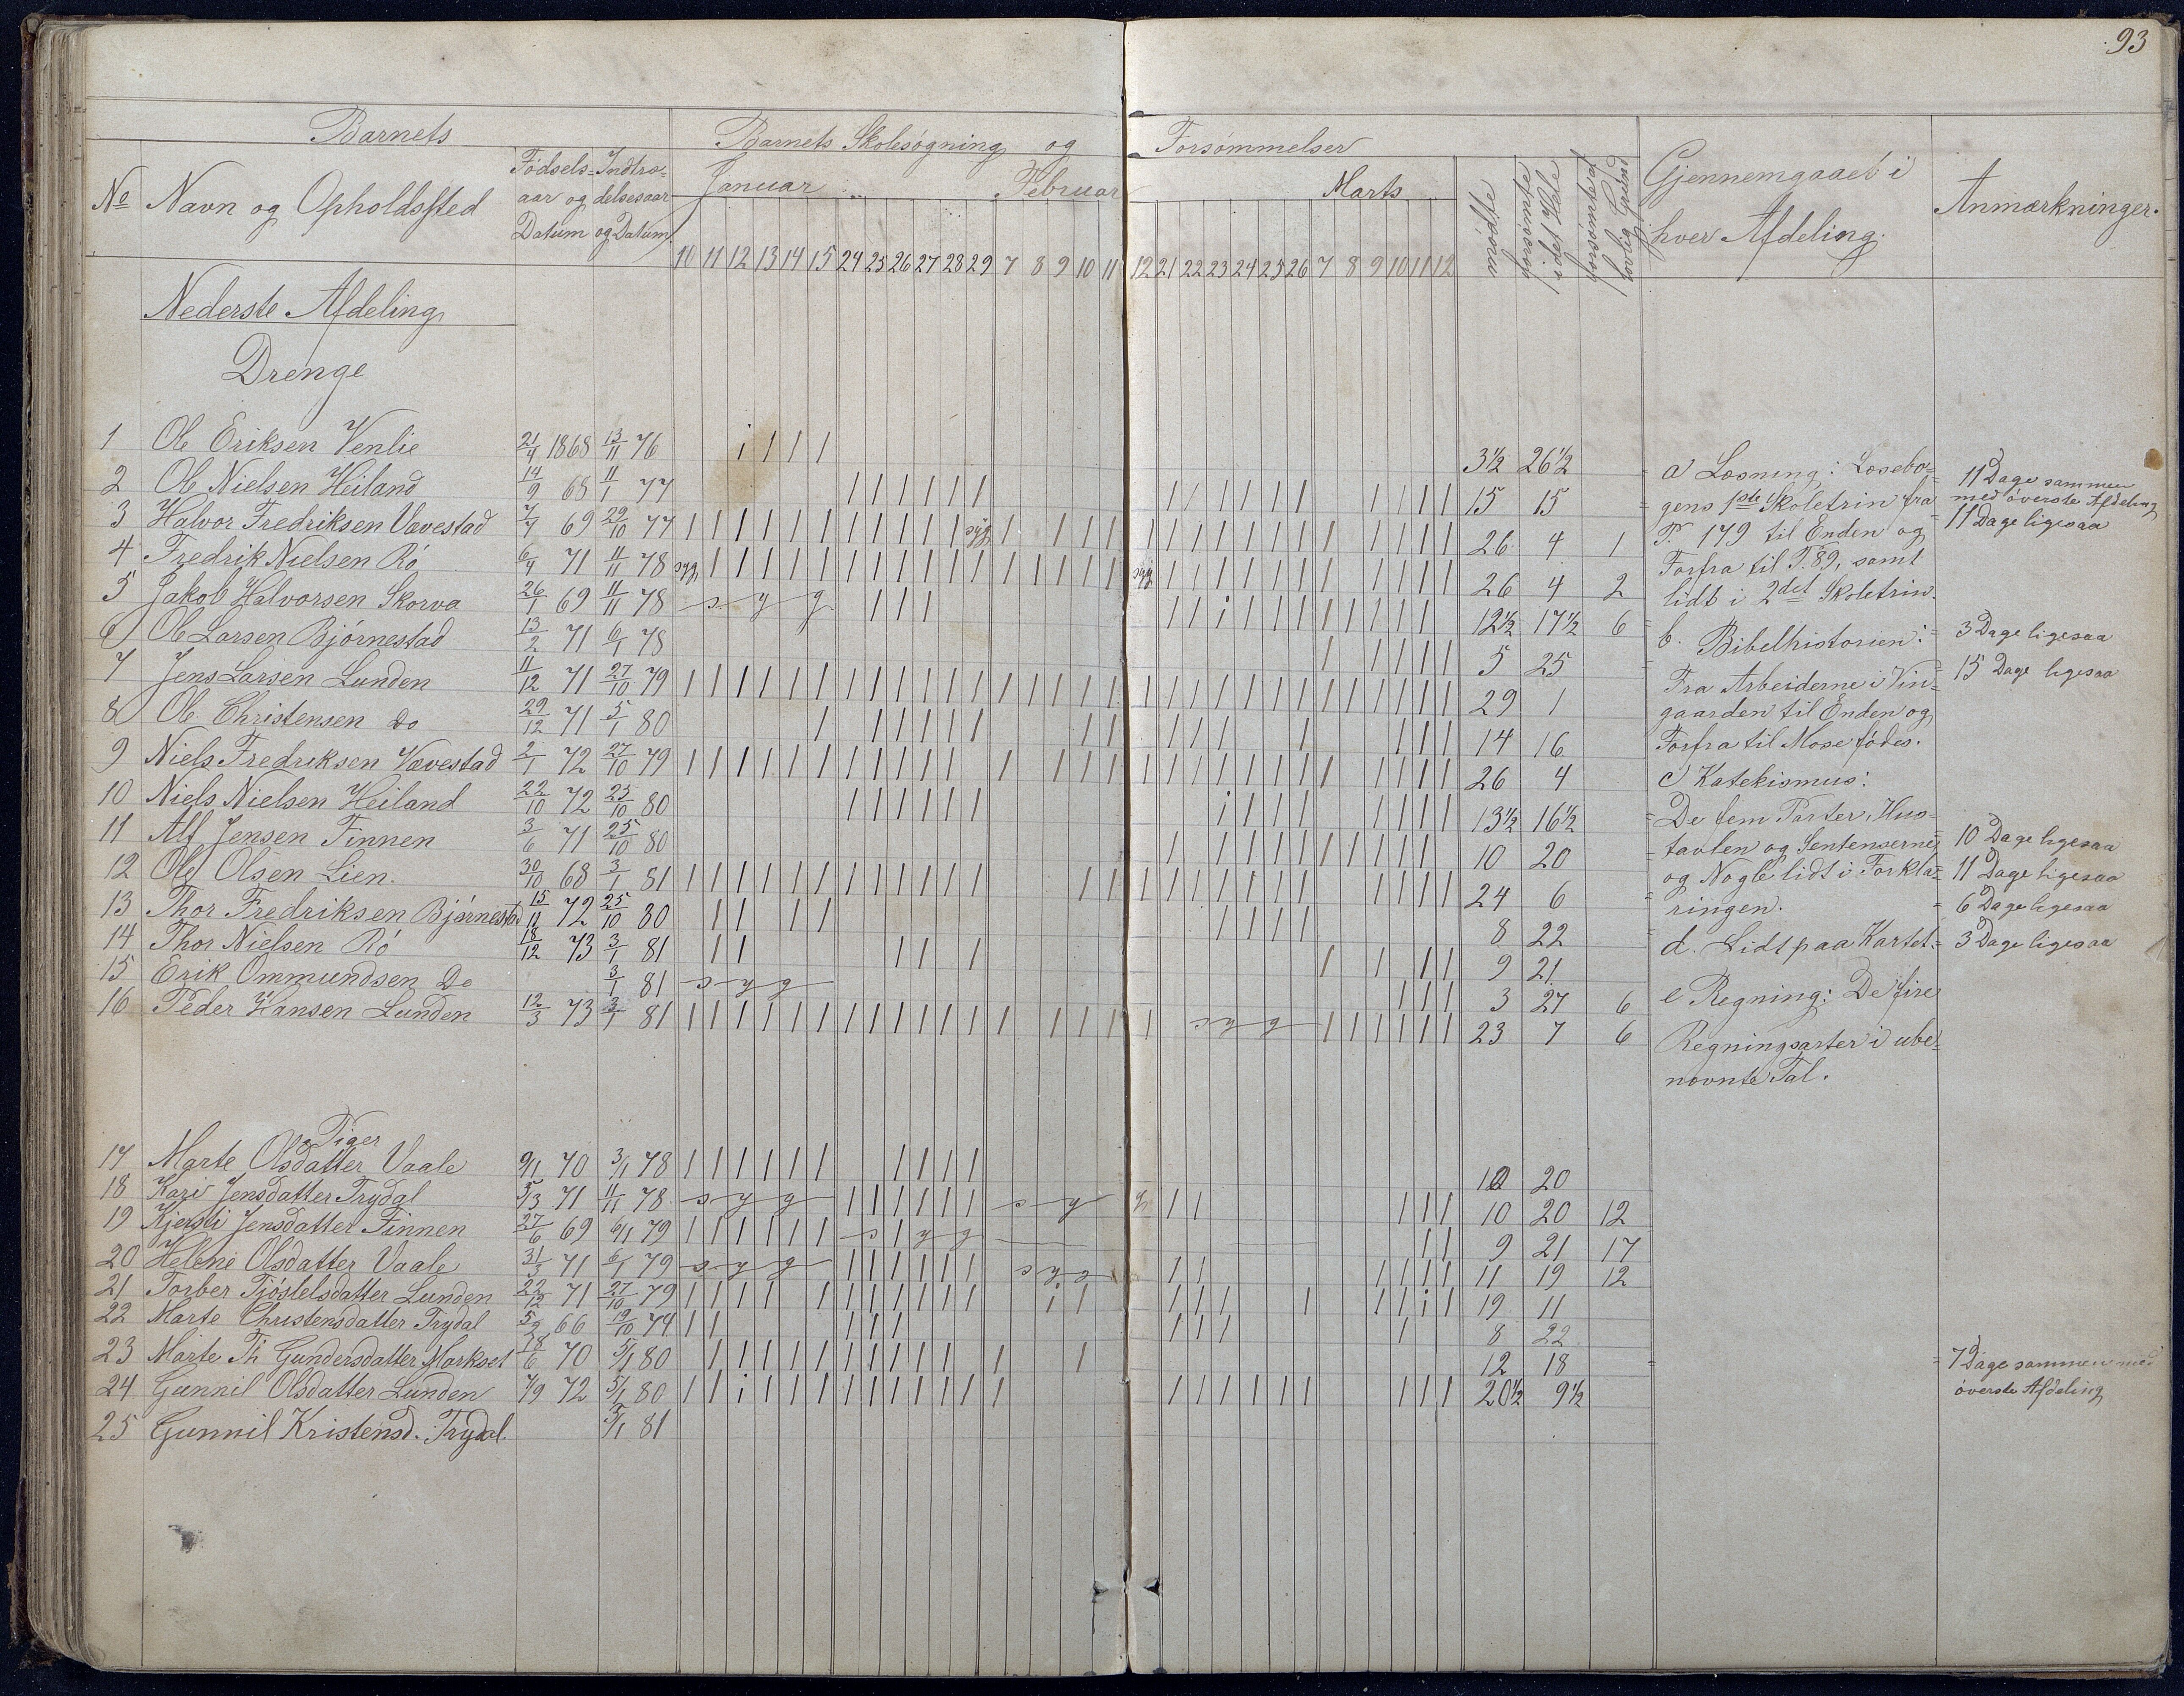 93
Barnets Barnets Skolesøgning og Forsømmelser
No Navn og Opholdssted Fødsels- aar og Datum Indtræ- delsesaar og Datum Januar Februar Marts mødte forsømte i det Hele forsømte af lovlig Grund Gjennemgaaet i hver Afdeling. Anmærkninger.
10 11 12 13 14 15 24 25 26 27 28 29 7 8 9 10 11 12 21 22 23 24 25 26 7 8 9 10 11 12
Nederste Afdeling
Drenge
1 Ole Eriksen Venlie 21/4 1868 13/11 76 i 1 1 1 3½ 26½
2 Ole Nielsen Heiland 14/9 68 11/1 77 1 1 1 1 1 1 1 1 1 1 1 1 1 1 1 15 15
3 Halvor Fredriksen Vævestad 7/7 69 29/10 77 syg 26 4 1
4 Fredrik Nielsen Rø 6/4 71 11/11 78 syg syg 26 4 2
5 Jakob Halvorsen Skorva 26/1 69 11/11 78 syg 12½ 17½ 6
6 Ole Larsen Bjørnestad 13/2 71 6/1 78 1 1 1 1 1 5 25
7 Jens Larsen Lunden 11/12 71 27/10 79 29 1
8 Ole Christensen Do 29/12 71 5/1 80 14 16
9 Niels Fredriksen Vævestad 2/1 72 27/10 79 26 4
10 Niels Nielsen Heiland 22/10 72 25/10 80 13½ 16½
11 Alf Jensen Finnen 3/6 71 25/10 80 10 20
12 Ole Olsen Lien. 30/10 68 3/1 81 24 6
13 Thor Fredriksen Bjørnestad 15/11 72 25/10 80 8 22
14 Thor Nielsen Rø 18/12 73 3/1 81 9 21
15 Erik Ommundsen Do 3/1 81 syg 3 27 6
16 Peder Hansen Lunden 12/3 73 3/1 81 syg 23 7 6
Piger
17 Marte Olsdatter Vaale 9/1 70 3/1 78 10 20
18 Kari Jensdatter Trydal 5/3 71 11/11 78 syg syg 10 20 12
19 Kjersti Jensdatter Finnen 27/6 69 6/1 79 syg 9 21 17
20 Helene Olsdatter Vaale 31/3 71 6/1 79 syg syg 11 19 12
21 Torber Tjøstelsdatter Lunden 22/12 71 27/10 79 19 11
22 Marte Christensdatter Trydal 5/2 66 19/10 74 8 22
23 Marte Th Gundersdatter Markset 18/6 70 5/1 80 12 18
24 Gunnil Olsdatter Lunden 7/9 72 5/1 80 20½ 9½
25 Gunnil Kristensd. Trydal. 3/1 81
a) Læsning: Læsebo-
gens 1ste Skoletrin fra
P. 179 til Enden og
Forfra til P. 89, samt
lidt i 2det Skoletrin.
b. Bibelhistorien:
Fra Arbeiderne i Vin-
gaarden til Enden og
Forfra til Mose fødes.
c) Katekismus:
De fem Parter, Hus-
tavlen og Sentenserne
og Nogle lidt i Forkla-
ringen.
d. Lidt paa Kartet.
e Regning: De fire
Regningsarter i ube-
nævnte Tal.
11 Dage sammen
med øverste Afdeling
11 Dage ligesaa
3 Dage ligesaa
15 Dage ligesaa
10 Dage ligesaa
11 Dage ligesaa
6 Dage ligesaa
3 Dage ligesaa
7 Dage sammen med
øverste Afdeling